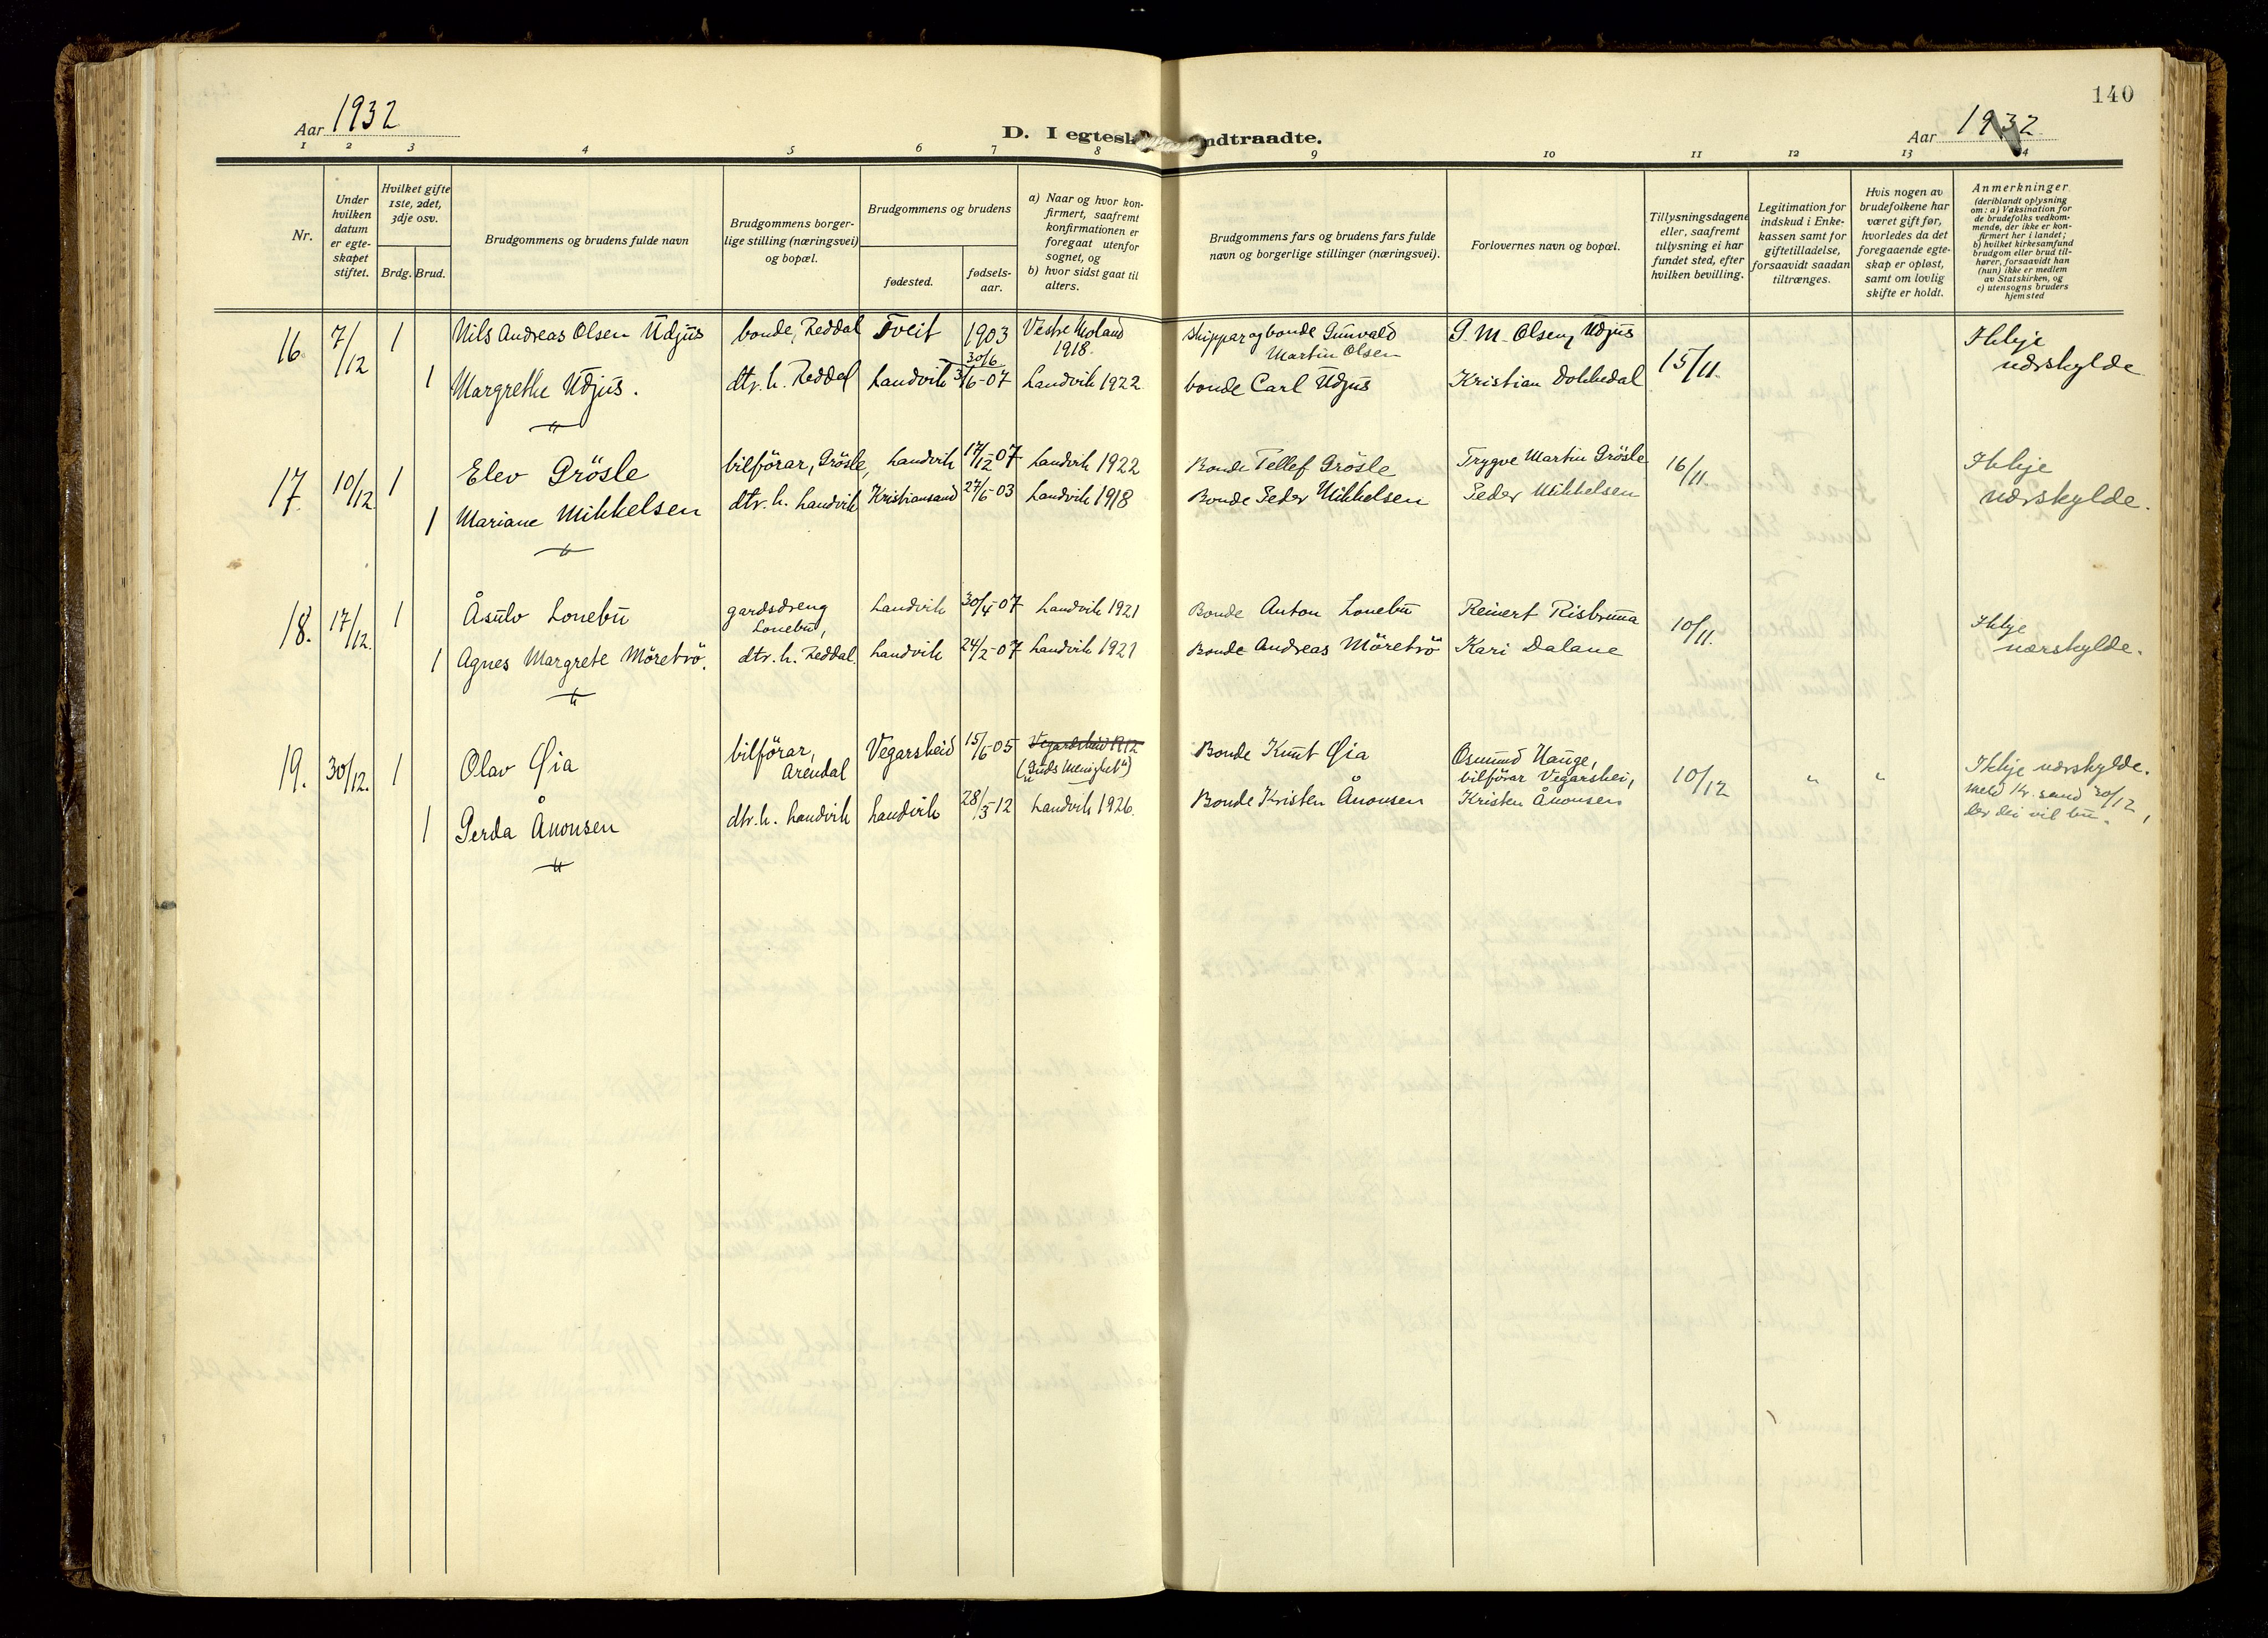 140
Aar 1932
D. I egtesk ndtraadte.
Aar 1932
1 2 3 4 5 6 7 8 9 10 11 12 13 14
Nr.
Under hvilken datum er egteskapet stiftet.
Hvilket gifte 1ste, 2det, 3dje osv.
Brdg. Brud.
Brudgommens og brudens fulde navn
Brudgommens borgerlige stilling (næringsvei) og bopæl.
Brudgommens og brudens
fødested.
fødselsaar.
a) Naar og hvor konfirmert, saafremt konfirmationen er foregaat utenfor sognet, og
b) hvor sidst gaat til alters.
Brudgommens fars og brudens fars fulde navn og borgerlige stillinger (næringsvei).
Forlovernes navn og bopæl.
Tillysningsdagene eller, saafremt tillysning ei har fundet sted, efter hvilken bevilling.
Legitimation for indskud i Enkekassen samt for giftetilladelse, forsaavidt saadan tiltrænges.
Hvis nogen av brudefolkene har været gift før, hvorledes da det foregaaende egteskap er opløst, samt om lovlig skifte er holdt.
Anmerkninger (deriblandt oplysning om: a) Vaksination for de brudefolks vedkommende, der ikke er konfirmert her i landet; b) hvilket kirkesamfund brudgom eller brud tilhører, forsaavidt han (hun) ikke er medlem av Statskirken, og c) utensogns bruders hjemsted
16. 7/12 1 Nils Andreas Olsen Udjus bonde, Reddal Tveit 1903 30/6 Vestre Moland 1918. Skippar og bonde Gunvald Martin Olsen G. M. Olsen, Udjus 15/11. Ikkje nærskylde
1 Margrethe Udjus. dtr. h. Reddal Landvik 3/6-07 Landvik 1922 bonde Carl Udjus Kristian Dokkedal
17. 10/12 1 Elev Grösle bilförar, Grösle, Landvik 17/12-07 Landvik 1922 Bonde Tellef Grösle Trygve Martin Grösle 16/11. Ikkje nærskylde.
1 Mariane Mikkelsen dtr. h. Landvik Kristiansand 27/6-03 Landvik 1918 Bonde Peder Mikkelsen Peder Mikkelsen
18. 17/12. 1 Åsulv Lonebu gardsdreng Lonebu, Landvik 30/4-07 Landvik 1921 Bonde Anton Lonebu Reinert Risbruna 10/11. Ikkje nærskylde.
1 Agnes Margrete Möretrö. dtr. h. Reddal. Landvik 24/2-07 Landvik 1921 Bonde Andreas Möretrö Kari Dalane
19. 30/12. 1 Olav Øia bilförar, Arendal Vegarsheid 15/6-05 ("Guds Menighet") Bonde Knut Øia Osmund Hauge, bilförar Vegarshei, 10/12 " " Ikkje nærskylde. Meld Kr.sand 30/12, der dei vil bu.
1 Gerda Ånonsen dtr. h. Landvik Landvik 28/3-12 Landvik 1926. Bonde Kristen Ånonsen Kristen Ånonsen